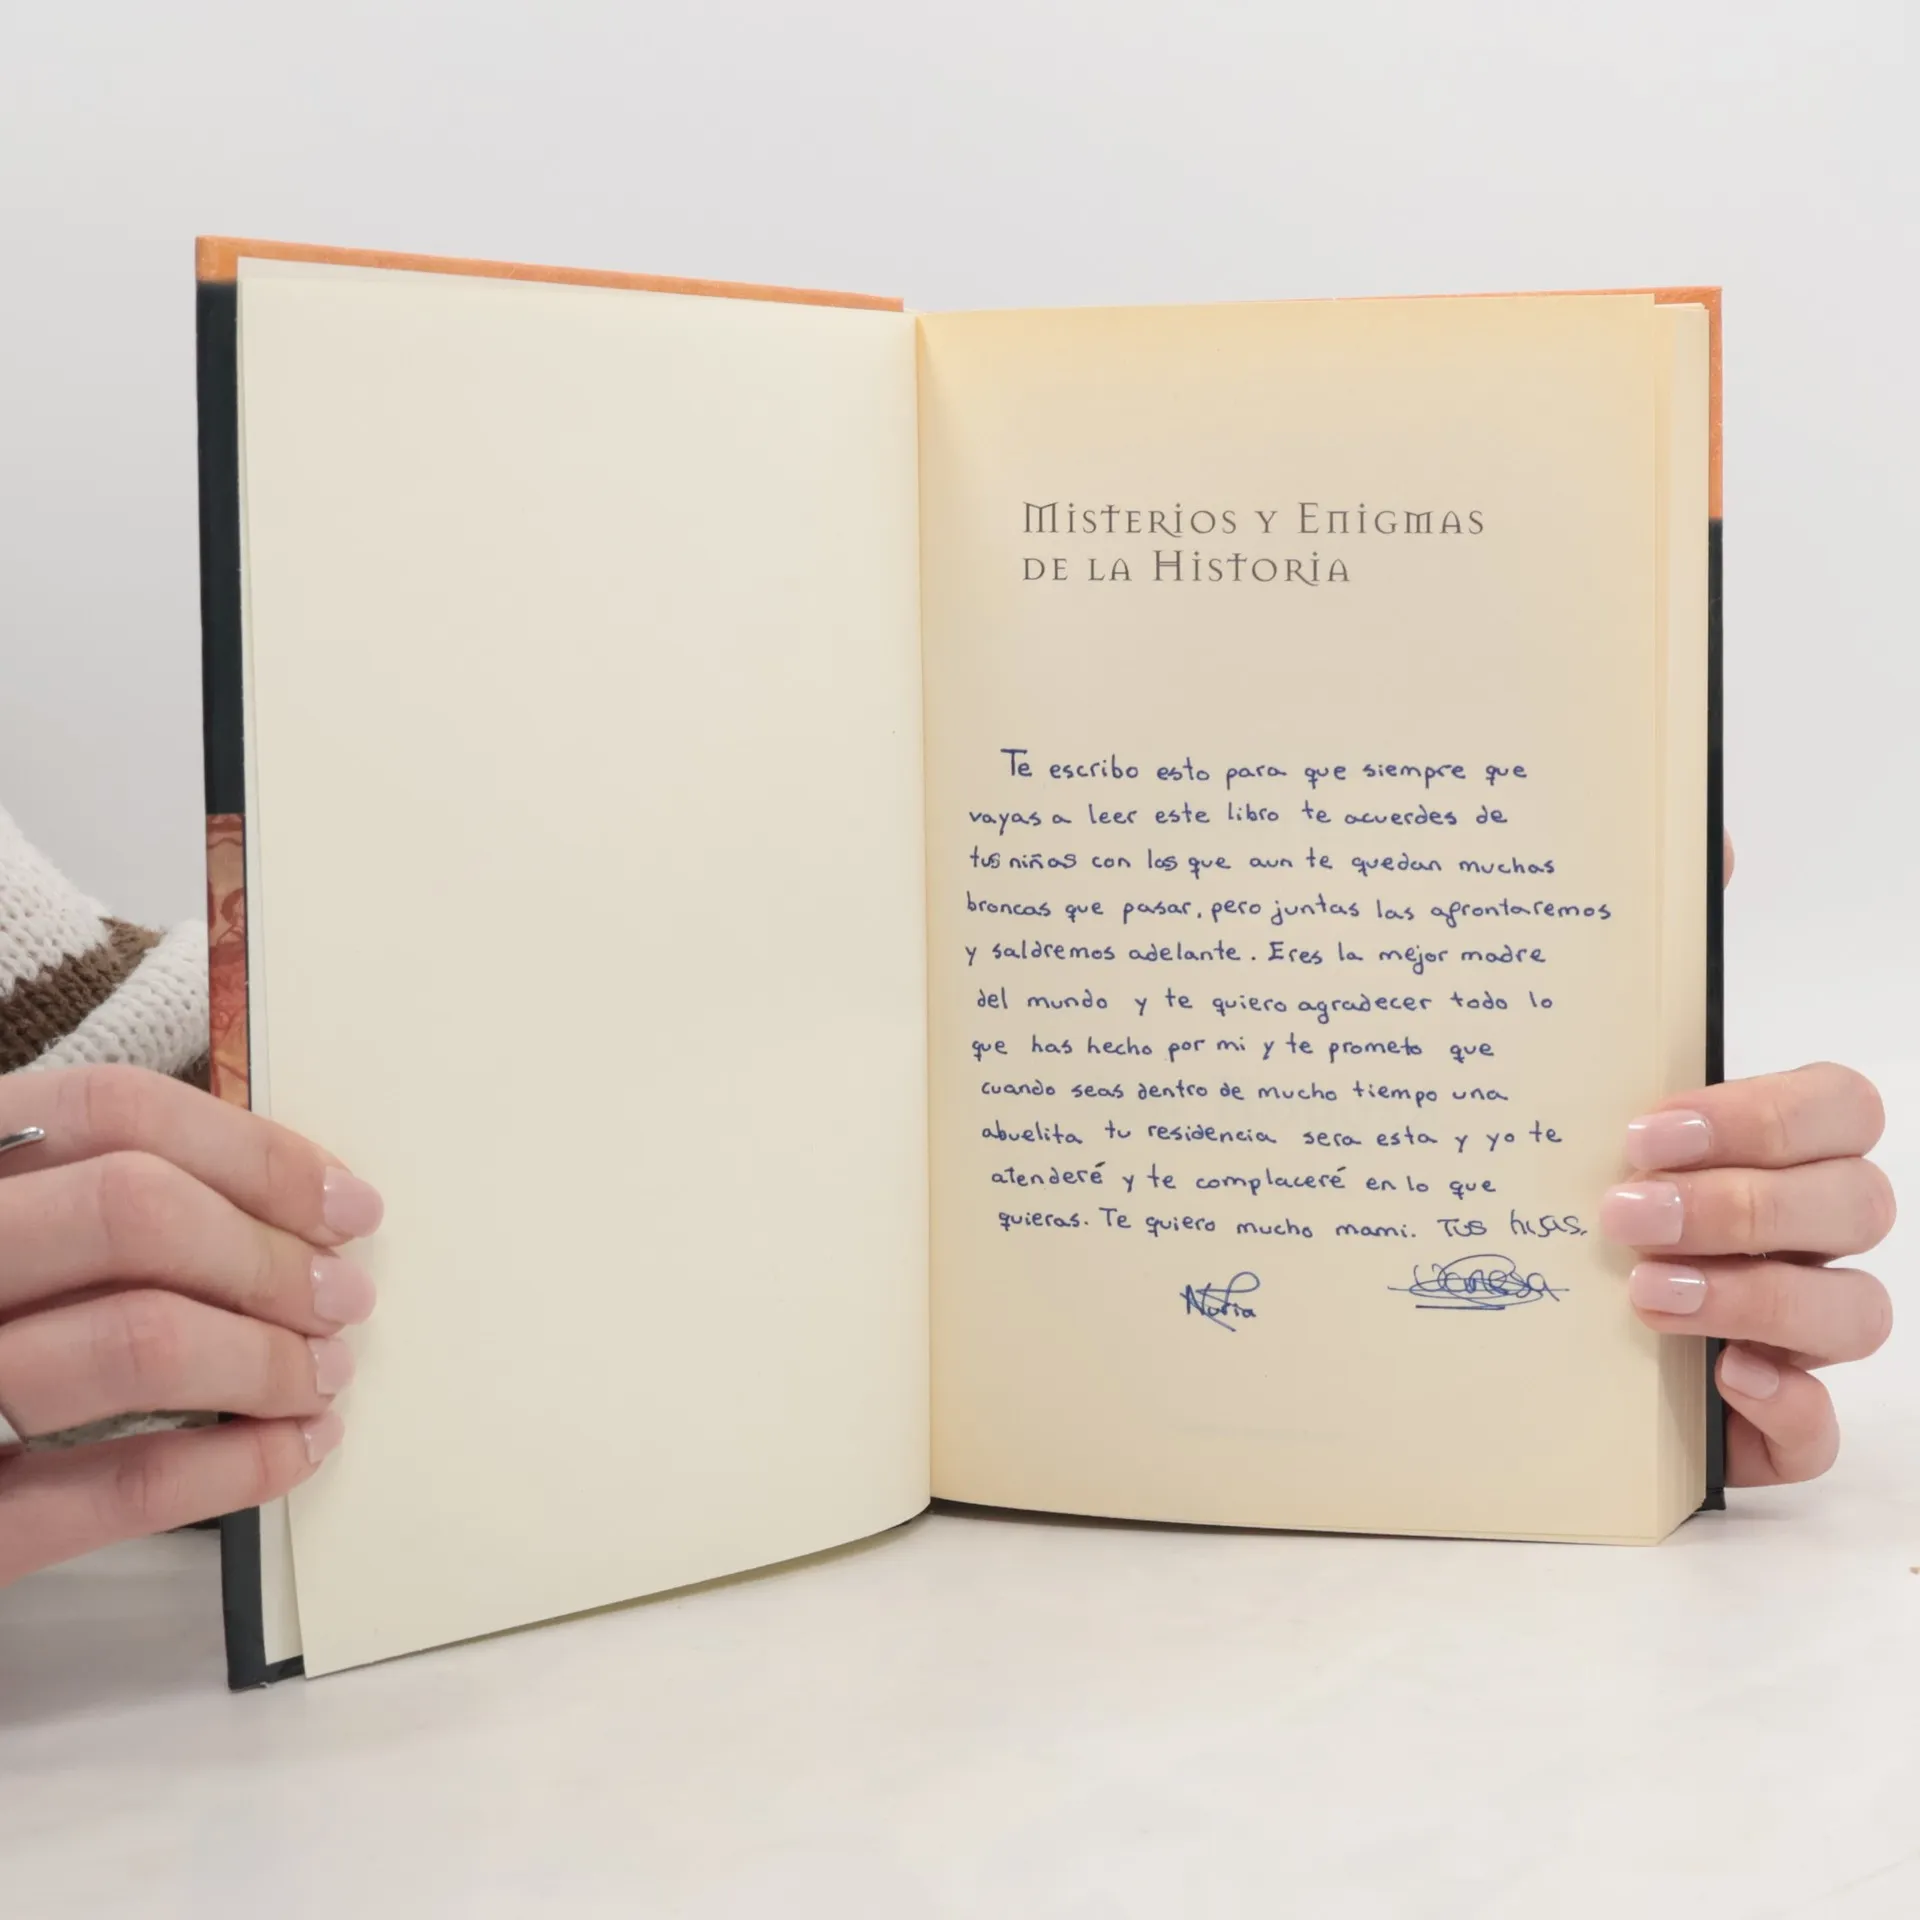 Misterios y Enigmas
de la Historia
Te escribo esto para que siempre que
vayas a leer este libro te acuerdes de
tus niñas con las que aun te quedan muchas
broncas que pasar, pero juntas las afrontaremos
y saldremos adelante. Eres la mejor madre
del mundo y te quiero agradecer todo lo
que has hecho por mi y te prometo que
cuando seas dentro de mucho tiempo una
abuelita tu residencia sera esta y yo te
atenderé y te complaceré en lo que
quieras. Te quiero mucho mami. Tus hijas.
Nuria Vanesa